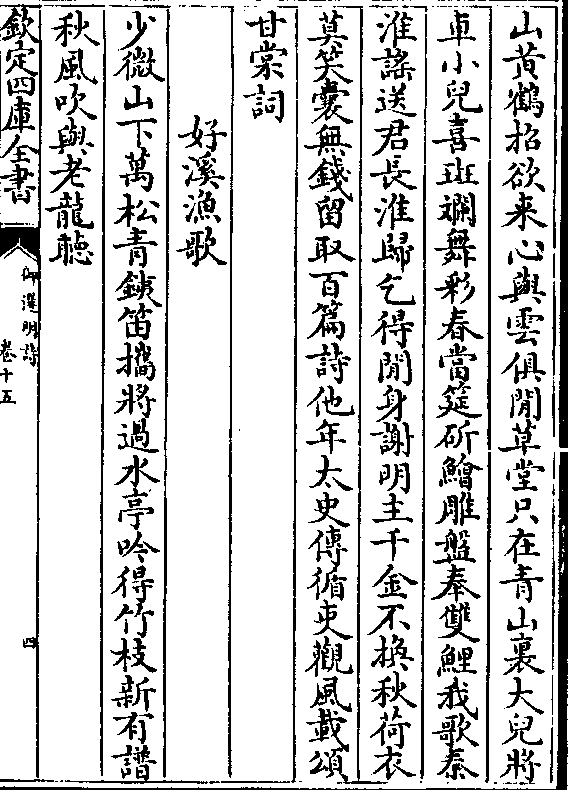 山黄鶴招欲来心與雲俱閒草堂只在青山裏大兒將
車小兒喜斑斕舞彩春當筵斫鱠雕盤奉雙鯉我歌秦
淮謠送君長淮歸乞得閒身謝明主千金不換秋荷衣
莫笑囊無錢留取百篇詩他年太史傳循吏觀風載頌
甘棠詞
好溪漁歌
少微山下萬松青鐵笛攜將過水亭吟得竹枝新有譜
秋風吹與老龍聽
欽定四庫全書
御選明詩
卷十五
四